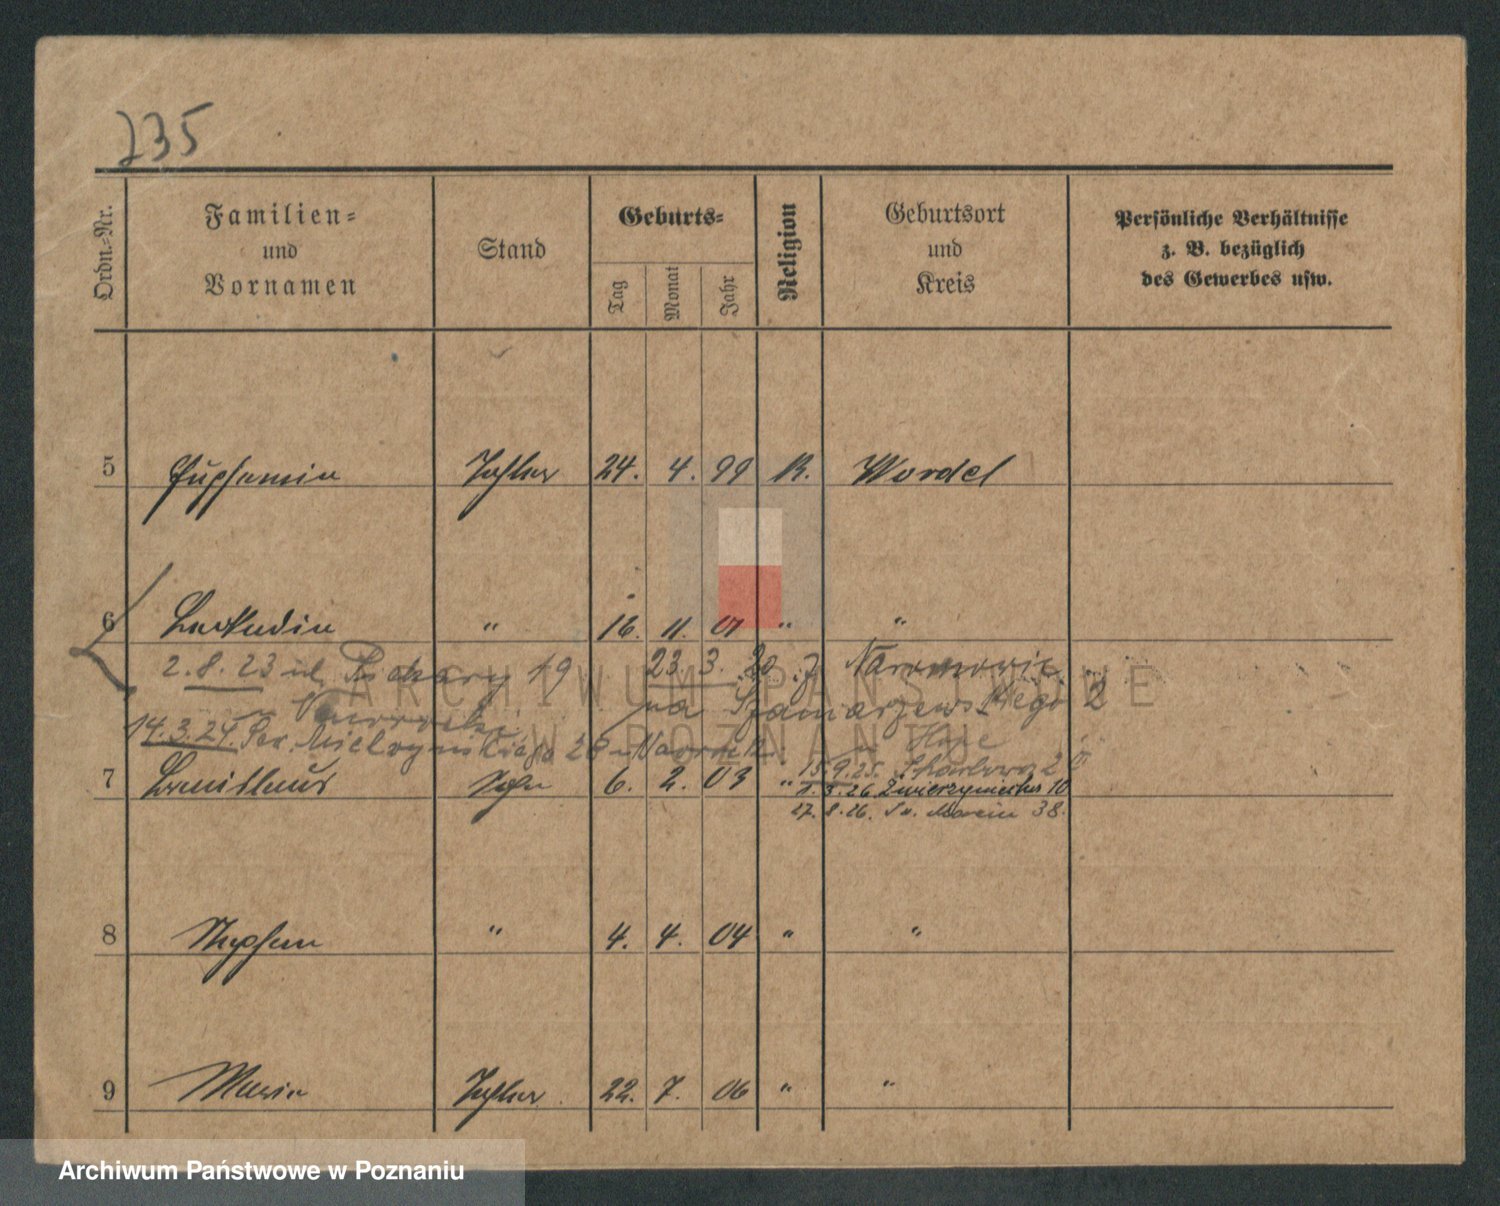 235
Ordn.-Nr.
Familien-
und
Vornamen
Stand
Geburts-
Tag
Monat
Jahr
Religion
Geburtsort
und
Kreis
Persönliche Verhältnisse
z. B. bezüglich
des Gewerbes usw.
5 Tochter 24. 4. 99 K. Wordel
6 Leokadia " 16. 11. 01 " "
2.8.23 ul. Piekary 19 23. 3. 20
14.3.24. Sew. Mielzynskiego 26
15.9.25.
7 Sohn 6. 2. 03 " 1.3.26. Zwierzyniecka 10
27.8.26. Św. Marcin 38.
8 Stephan " 4. 4. 04 " "
9 Maria Tochter 22. 7. 06 " "
ARCHIWUM PAŃSTWOWE
W POZNANIU
Archiwum Państwowe w Poznaniu